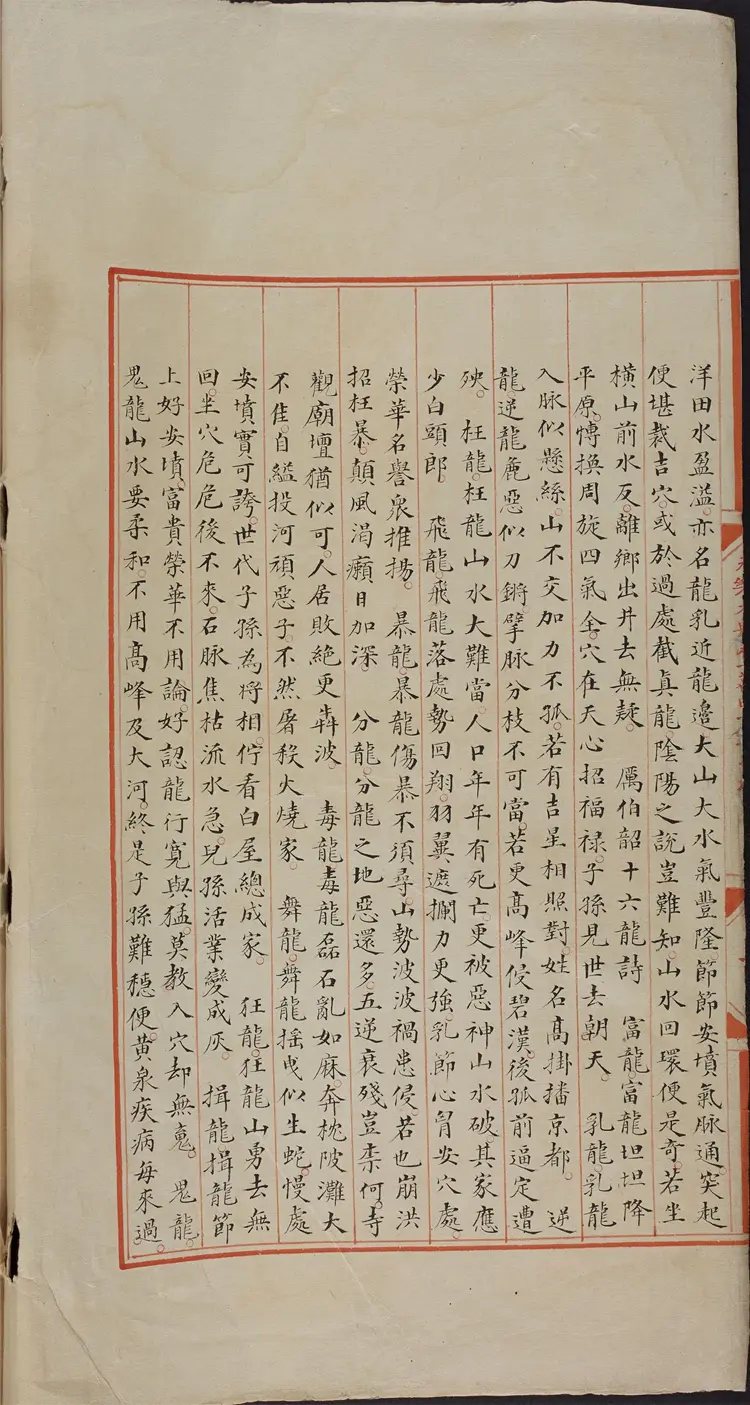 洋田水盈溢。亦名龍乳近龍邉大山大水氣豐隆節節安墳氣脉通突起
便堪裁吉穴。或於過處截真龍陰陽之說豈難知。山水回環便是奇。若坐
橫山前水反。離鄉出井去無疑。 厲伯韶十六龍詩 富龍。富龍坦坦降
平原。慱換周旋四氣全。穴在天心招福禄。子孫見世去朝天。 乳龍。乳龍
入脉似懸絲。山不交加力不孤。若有吉星相照對。姓名髙掛播京都。 逆
龍逆龍麄惡似刀鏘擘脉分枝不可當。若更髙峰侵碧漢。後孤前逼定遭
殃。 枉龍。枉龍山水大難當。人口年年有死亡。更被惡神山水破其家應
少白頭郎。 飛龍飛龍落處勢回翔。羽翼遮攔力更強乳節心胷安穴處。
榮華名譽衆推揚。 暴龍。暴龍傷暴不須尋。山勢波波禍患侵若也崩洪
招枉暴。顛風渴癩日加深。 分龍。分龍之地惡還多。五逆衰殘豈柰何。寺
觀廟壇猶似可。人居敗絶更犇波。 毒龍毒龍磊石亂如麻。奔枕陂灘大
不佳。自縊投河頑惡子。不然屠殺火燒家。 舞龍。舞龍揺曳似生蛇慢處
安墳實可誇。世代子孫為將相佇看白屋總成家。 狂龍。狂龍山勇去無
回。坐穴危危後不來。石脉焦枯流水急。兒孫活業變成灰。 揖龍揖龍節
上好安墳。富貴榮華不用論。好認龍行寛與猛。莫教入穴却無䰟。 鬼龍。
鬼龍山水要柔和。不用髙峰及大河。終是子孫難穩便。黄泉疾病每來過。